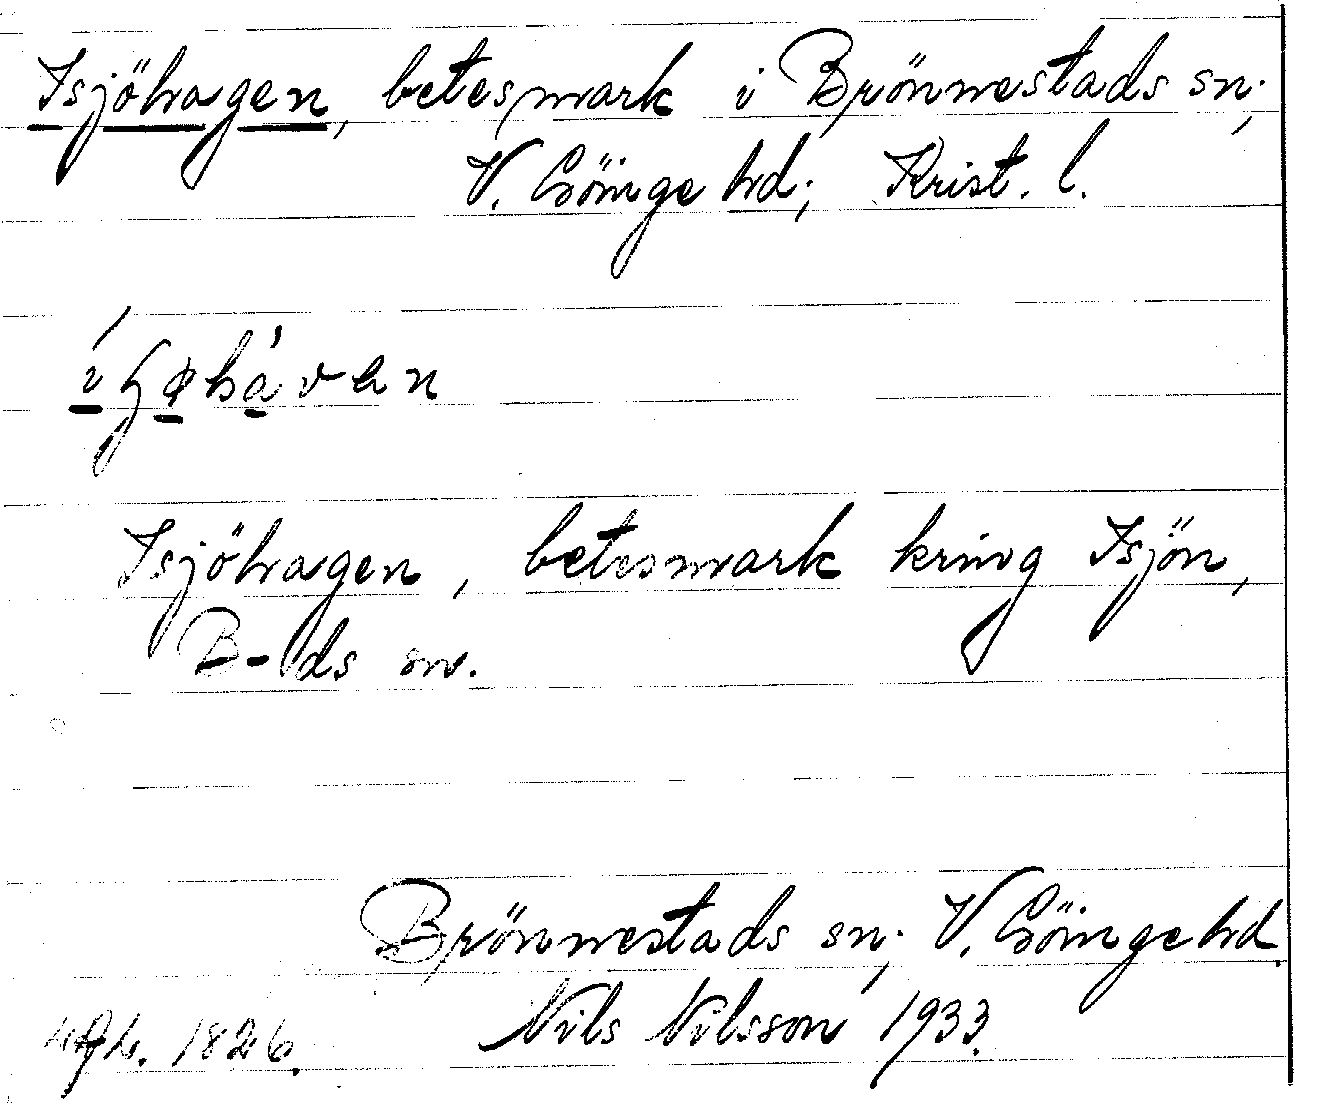 Isjöhagen, betesmark i Brönnestads sn;
V. Göinge hd; Krist. l.
Isjöhagen, betesmark kring Isjön,
B-ds sn.
Brönnestads sn; V. Göinge hd.
1826. Nils Nilsson 1933.